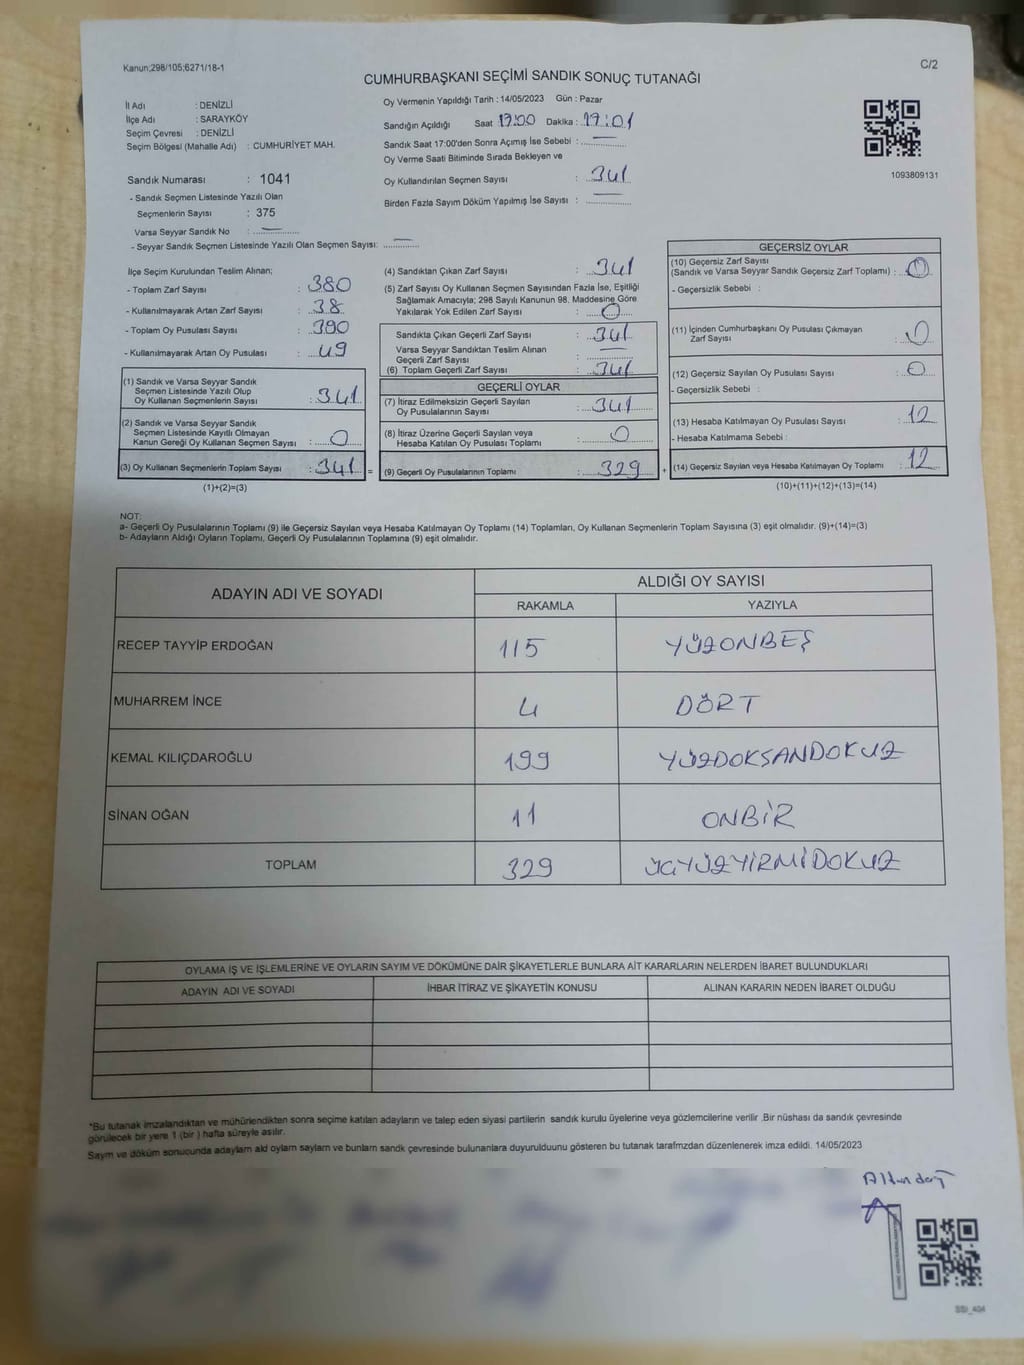 Kanun;298/105;6271/18-1
C/2
CUMHURBAŞKANI SEÇİMİ SANDIK SONUÇ TUTANAĞI
İl Adı : DENİZLİ
İlçe Adı : SARAYKÖY
Seçim Çevresi : DENİZLİ
Seçim Bölgesi (Mahalle Adı) : CUMHURİYET MAH.
Sandık Numarası : 1041
- Sandık Seçmen Listesinde Yazılı Olan
Seçmenlerin Sayısı : 375
Varsa Seyyar Sandık No : —
- Seyyar Sandık Seçmen Listesinde Yazılı Olan Seçmen Sayısı: —
Oy Vermenin Yapıldığı Tarih : 14/05/2023 Gün : Pazar
Sandığın Açıldığı Saat 17:00 Dakika : 17:01
Sandık Saat 17:00'den Sonra Açımış İse Sebebi : —
Oy Verme Saati Bitiminde Sırada Bekleyen ve
Oy Kullandırılan Seçmen Sayısı : 341
Birden Fazla Sayım Döküm Yapılmış İse Sayısı : —
1093809131
İlçe Seçim Kurulundan Teslim Alınan;
- Toplam Zarf Sayısı : 380
- Kullanılmayarak Artan Zarf Sayısı : 38
- Toplam Oy Pusulası Sayısı : 390
- Kullanılmayarak Artan Oy Pusulası : 49
(1) Sandık ve Varsa Seyyar Sandık
Seçmen Listesinde Yazılı Olup
Oy Kullanan Seçmenlerin Sayısı : 341
(2) Sandık ve Varsa Seyyar Sandık
Seçmen Listesinde Kayıtlı Olmayan
Kanun Gereği Oy Kullanan Seçmen Sayısı : 0
(3) Oy Kullanan Seçmenlerin Toplam Sayısı : 341 =
(1)+(2)=(3)
(4) Sandıktan Çıkan Zarf Sayısı : 341
(5) Zarf Sayısı Oy Kullanan Seçmen Sayısından Fazla İse, Eşitliği
Sağlamak Amacıyla; 298 Sayılı Kanunun 98. Maddesine Göre
Yakılarak Yok Edilen Zarf Sayısı : 0
Sandıkta Çıkan Geçerli Zarf Sayısı : 341
Varsa Seyyar Sandıktan Teslim Alınan
Geçerli Zarf Sayısı : —
(6) Toplam Geçerli Zarf Sayısı : 341
GEÇERLİ OYLAR
(7) İtiraz Edilmeksizin Geçerli Sayılan
Oy Pusulalarının Sayısı : 341
(8) İtiraz Üzerine Geçerli Sayılan veya
Hesaba Katılan Oy Pusulası Toplamı : 0
(9) Geçerli Oy Pusulalarının Toplamı : 329 +
GEÇERSİZ OYLAR
(10) Geçersiz Zarf Sayısı
(Sandık ve Varsa Seyyar Sandık Geçersiz Zarf Toplamı) : 0
- Geçersizlik Sebebi :
(11) İçinden Cumhurbaşkanı Oy Pusulası Çıkmayan
Zarf Sayısı : 0
(12) Geçersiz Sayılan Oy Pusulası Sayısı : 0
- Geçersizlik Sebebi :
(13) Hesaba Katılmayan Oy Pusulası Sayısı : 12
- Hesaba Katılmama Sebebi :
(14) Geçersiz Sayılan veya Hesaba Katılmayan Oy Toplamı : 12
(10)+(11)+(12)+(13)=(14)
NOT:
a- Geçerli Oy Pusulalarının Toplamı (9) ile Geçersiz Sayılan veya Hesaba Katılmayan Oy Toplamı (14) Toplamları, Oy Kullanan Seçmenlerin Toplam Sayısına (3) eşit olmalıdır. (9)+(14)=(3)
b- Adayların Aldığı Oyların Toplamı, Geçerli Oy Pusulalarının Toplamına (9) eşit olmalıdır.
ADAYIN ADI VE SOYADI
ALDIĞI OY SAYISI
RAKAMLA YAZIYLA
RECEP TAYYİP ERDOĞAN 115 YÜZONBEŞ
MUHARREM İNCE 4 DÖRT
KEMAL KILIÇDAROĞLU 199 YÜZDOKSANDOKUZ
SİNAN OĞAN 11 ONBİR
TOPLAM 329 ÜÇYÜZYİRMİDOKUZ
OYLAMA İŞ VE İŞLEMLERİNE VE OYLARIN SAYIM VE DÖKÜMÜNE DAİR ŞİKAYETLERLE BUNLARA AİT KARARLARIN NELERDEN İBARET BULUNDUKLARI
ADAYIN ADI VE SOYADI İHBAR İTİRAZ VE ŞİKAYETİN KONUSU ALINAN KARARIN NEDEN İBARET OLDUĞU
*Bu tutanak imzalandıktan ve mühürlendikten sonra seçime katılan adayların ve talep eden siyasi partilerin sandık kurulu üyelerine veya gözlemcilerine verilir .Bir nüshası da sandık çevresinde
görülecek bir yere 1 (bir ) hafta süreyle asılır.
Sayım ve döküm sonucunda adayların aldı oyların sayıları ve bunların sandk çevresinde bulunanlara duyurulduunu gösteren bu tutanak tarafmzdan düzenlenerek imza edildi. 14/05/2023
Altundağ